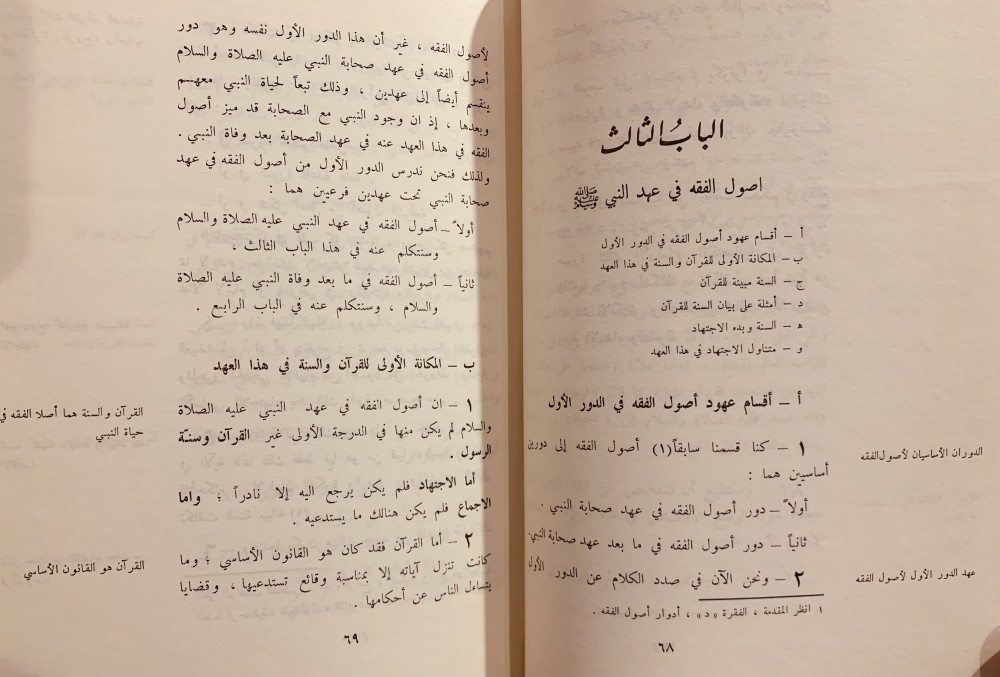 الباب الثالث
اصول الفقه في عهد النبي ﷺ
أ – أقسام عهود أصول الفقه في الدور الأول
ب – المكانة الأولى للقرآن والسنة في هذا العهد
ج – السنة مبينة للقرآن
د – أمثلة على بيان السنة للقرآن
ه – السنة وبدء الاجتهاد
و – متناول الاجتهاد في هذا العهد
أ – أقسام عهود أصول الفقه في الدور الأول
الدوران الأساسيان لأصول الفقه
١ – كنا قسمنا سابقاً(١) أصول الفقه إلى دورين
أساسيين هما :
أولاً – دور أصول الفقه في عهد صحابة النبي .
ثانياً – دور أصول الفقه في ما بعد عهد صحابة النبي .
عهد الدور الأول لأصول الفقه
٢ – ونحن الآن في صدد الكلام عن الدور الأول
١ انظر المقدمة ، الفقرة « د » ، أدوار أصول الفقه .
٦٨
لأصول الفقه ، غير أن هذا الدور الأول نفسه وهو دور
أصول الفقه في عهد صحابة النبي عليه الصلاة والسلام
ينقسم أيضاً إلى عهدين ، وذلك تبعاً لحياة النبي معهم
وبعدها ، إذ ان وجود النبي مع الصحابة قد ميز أصول
الفقه في هذا العهد عنه في عهد الصحابة بعد وفاة النبي .
ولذلك فنحن ندرس الدور الأول من أصول الفقه في عهد
صحابة النبي تحت عهدين فرعيين هما :
أولاً – أصول الفقه في عهد النبي عليه الصلاة والسلام
وسنتكلم عنه في هذا الباب الثالث ،
ثانياً – أصول الفقه في ما بعد وفاة النبي عليه الصلاة
والسلام ، وسنتكلم عنه في الباب الرابع .
ب – المكانة الأولى للقرآن والسنة في هذا العهد
القرآن والسنة هما أصلا الفقه في
حياة النبي
١ – ان أصول الفقه في عهد النبي عليه الصلاة
والسلام لم يكن منها في الدرجة الأولى غير القرآن وسنّة
الرسول .
أما الاجتهاد فلم يكن يرجع اليه إلا نادراً ؛ واما
الاجماع فلم يكن هنالك ما يستدعيه .
القرآن هو القانون الأساسي
٢ – أما القرآن فقد كان هو القانون الأساسي ؛ وما
كانت تنزل آياته إلا بمناسبة وقائع تستدعيها ، وقضايا
يتساءل الناس عن أحكامها .
٦٩